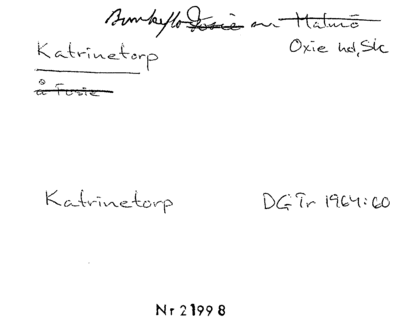 Bunkeflo Fosie sn Malmö
Katrinetorp Oxie hd, Sk
å Fosie
Katrinetorp DGTr 1964:60
Nr 21998